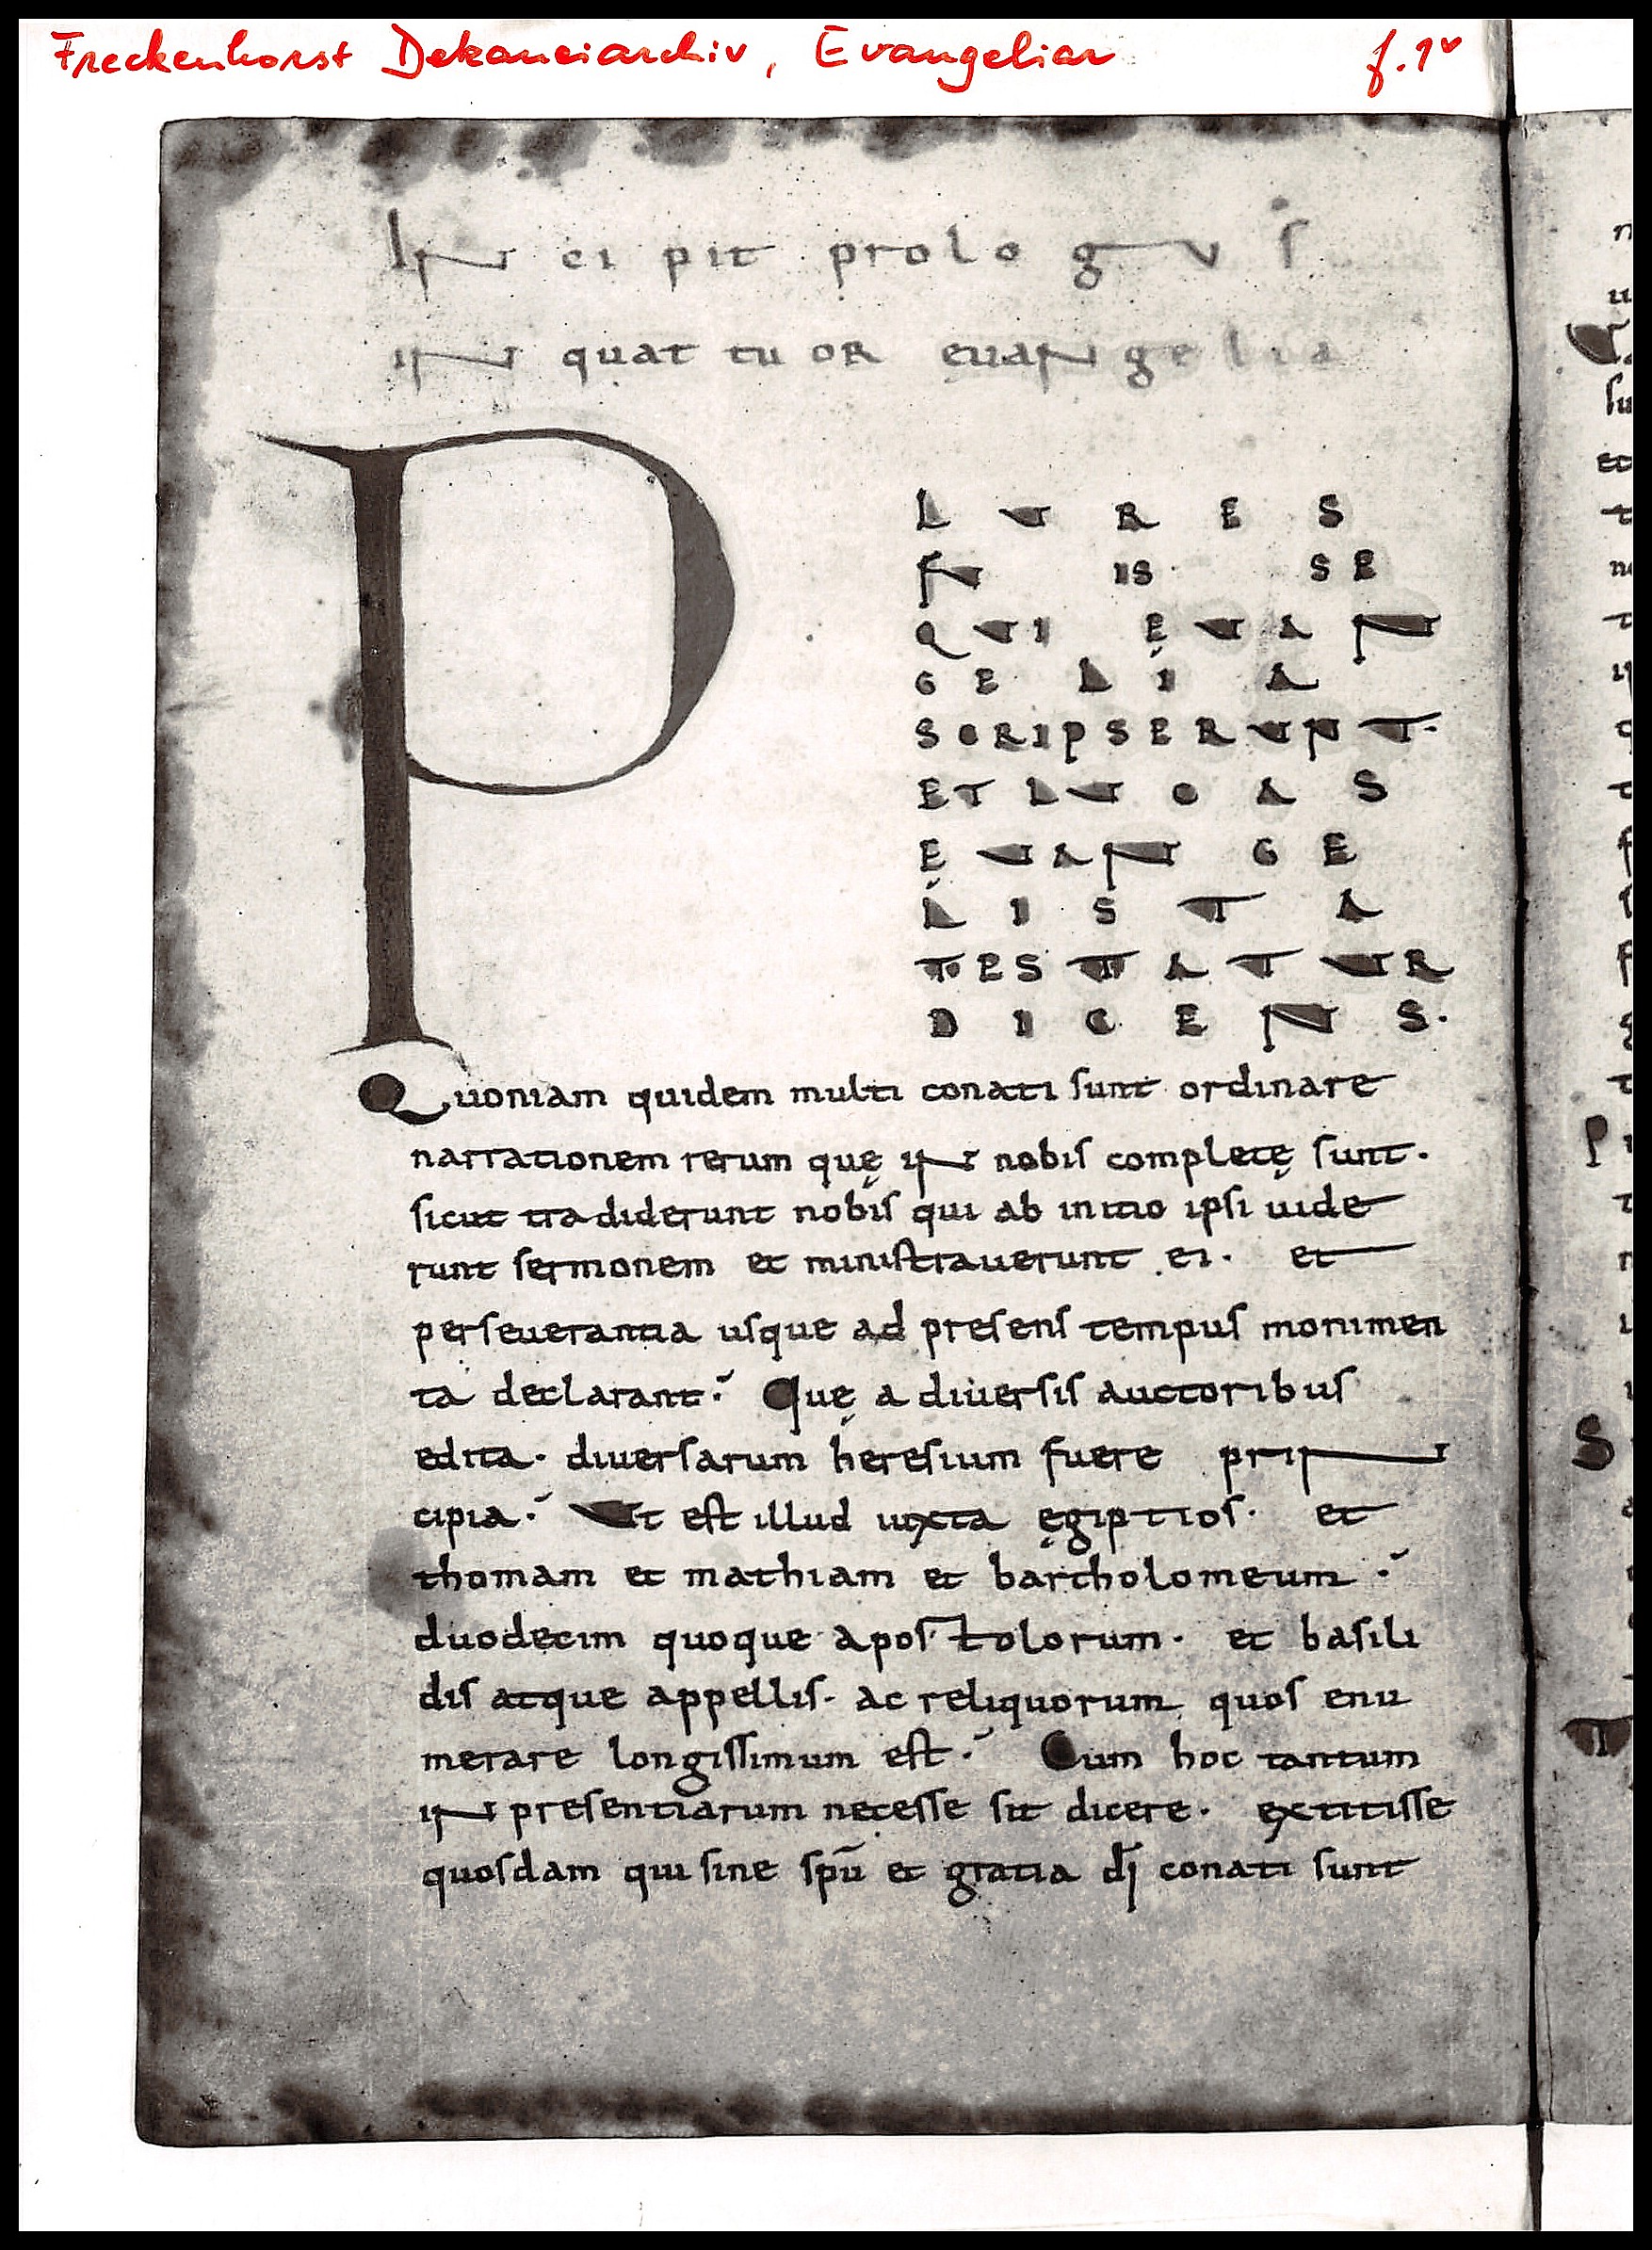 Freckenhorst Dekaneiarchiv, Evangeliar f. 1v
INcipit prologuſ
IN quattuor ęuaNgelia
P
LURES
FUISSE
QUI ĘUAN
GELIA
SCRIPSERUNT·
ET LUCAS
ĘUANGE
LISTA
TESTATUR
DICENS·
Quoniam quidem multi conati ſunt ordinare
narrationem rerum quę iN nobiſ completę ſunt·
ſicut tradiderunt nobiſ qui ab initio ipſi uide
runt ſermonem et miniſtrauerunt ei· et
perſeuerantia uſque ad preſenſ tempuſ monimen
ta declarant· Quę a diuerſiſ auctoribuſ
edita· diuerſarum hereſium fuere priN
cipia· Ut eſt illud iuxta ęgiptioſ· et
thomam et mathiam et bartholomeum·
duodecim quoque apoſtolorum· et baſili
diſ atque appelliſ· ac reliquorum quoſ enu
merare longiſſimum eſt· Cum hoc tantum
iN preſentiarum neceſſe ſit dicere· extitiſſe
quoſdam qui ſine ſpū et gratia dī conati ſunt